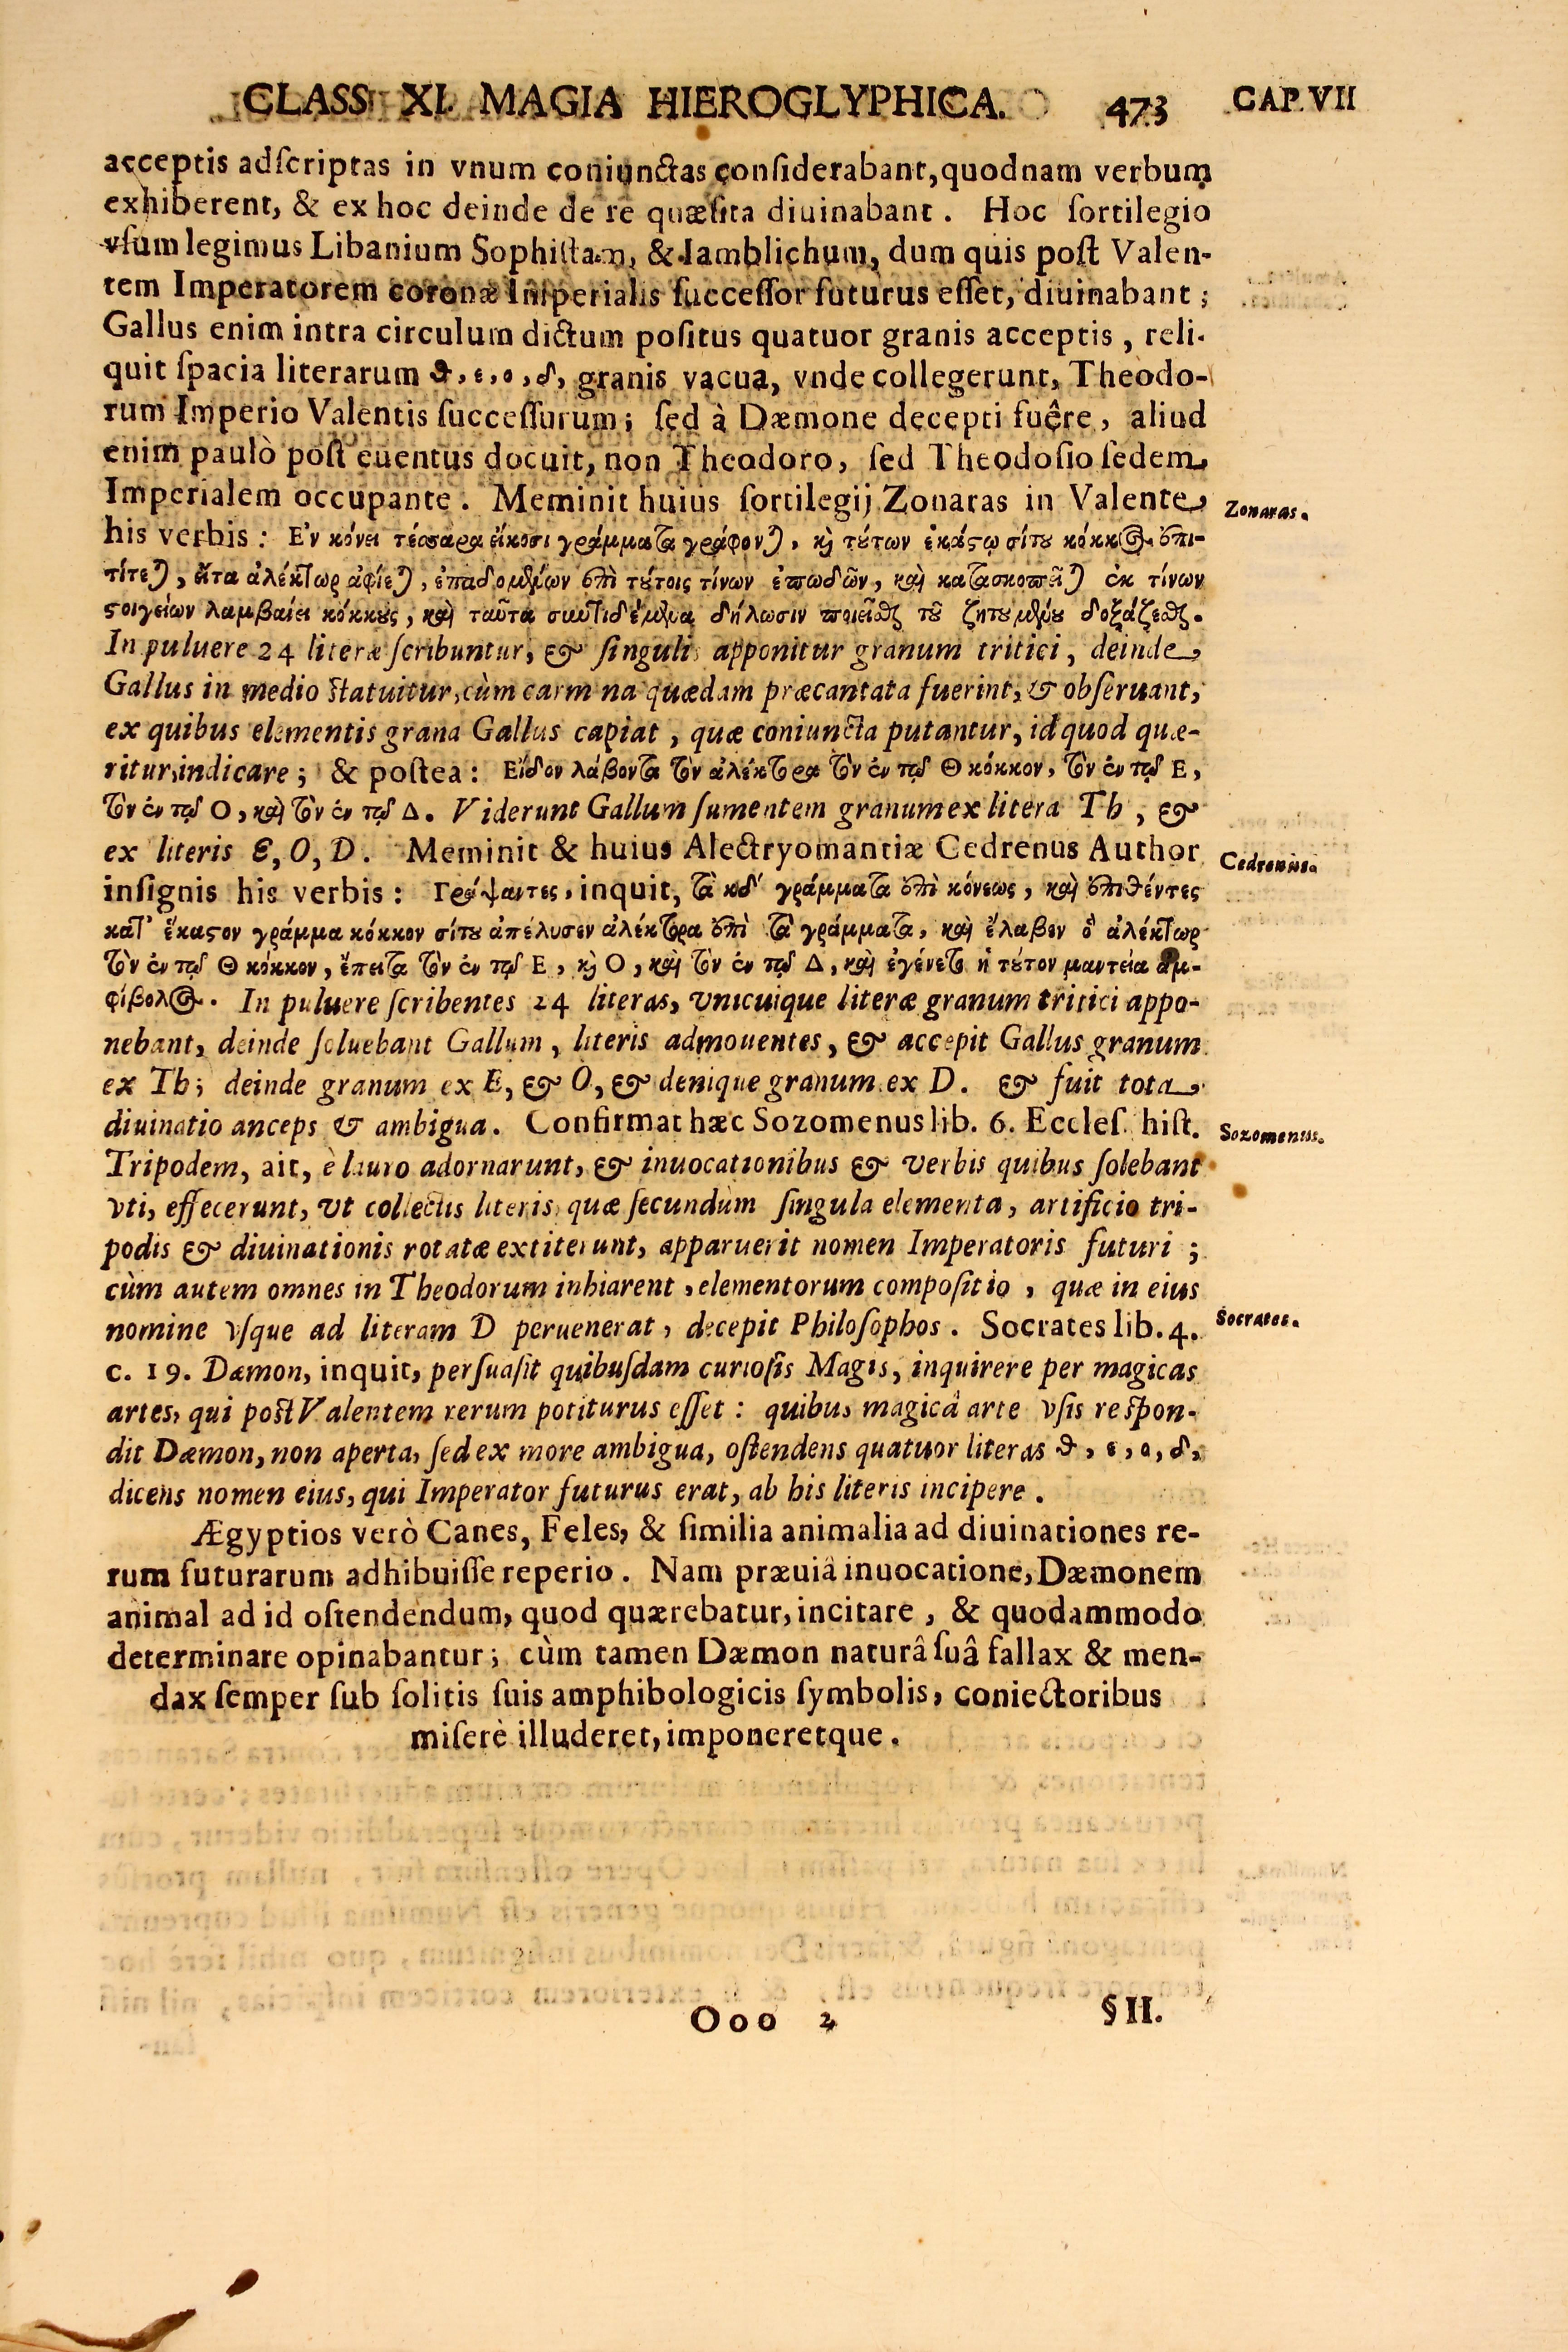 CLASS XI. MAGIA HIEROGLYPHICA. 473 CAP. VII
acceptis adſcriptas in vnum coniunctas conſiderabant, quodnam verbum
exhiberent, & ex hoc deinde de re quæſita diuinabant. Hoc ſortilegio
vſum legimus Libanium Sophiſtam, & Iamblichum, dum quis poſt Valen-
tem Imperatorem coronæ Imperialis ſucceſſor futurus eſſet, diuinabant;
Gallus enim intra circulum dictum poſitus quatuor granis acceptis, reli-
quit ſpacia literarum ϑ, ε, ο, δ, granis vacua, vnde collegerunt, Theodo-
rum Imperio Valentis ſucceſſurum; ſed à Dæmone decepti fuêre, aliud
enim paulò poſt euentus docuit, non Theodoro, ſed Theodoſio ſedem
Imperialem occupante. Meminit huius ſortilegij Zonaras in Valente
Zonaras.
his verbis: Εν κόνει τέσσαρα εἴκοσι γράμματα γράφον), κὶ τούτων ἑκάστῳ σίτου κόκκος ἐπι-
τίτε), εἴτα ἀλέκτωρ ἀφίε), ἐπαδομένων ἐπὶ τούτοις τίνων ἐπωδῶν, καὶ κατασκοπεῖ) ἐκ τίνων
στοιγείων λαμβαίει κόκκους, καὶ ταῦτα συντιδέμενα δήλωσιν ποιεῖσθαι τοῦ ζητουμένου δοξάζεσθαι.
In puluere 24 literæ ſcribuntur, & ſingulis apponitur granum tritici, deinde
Gallus in medio ſtatuitur, cùm carmina quædam præcantata fuerint, & obſeruant,
ex quibus elementis grana Gallus capiat, quæ coniuncta putantur, id quod quæ-
ritur, indicare; & poſtea: Εἶδον λάβοντα τὸν ἀλέκτορα τὸν ἐν τῷ Θ κόκκον, τὸν ἐν τῷ Ε,
τὸν ἐν τῷ Ο, καὶ τὸν ἐν τῷ Δ. Viderunt Gallum ſumentem granum ex litera Th, &
ex literis E, O, D. Meminit & huius Alectryomantiæ Cedrenus Author
Cedrenus.
inſignis his verbis: Γράψαντες, inquit, τὰ κδ' γράμματα ἐπὶ κόνεως, καὶ ἐπιθέντες
κατ' ἕκαστον γράμμα κόκκον σίτου ἀπέλυσεν ἀλέκτορα ἐπὶ τὰ γράμματα, καὶ ἔλαβον ὁ ἀλέκτωρ
τὸν ἐν τῷ Θ κόκκον, ἔπειτα τὸν ἐν τῷ Ε, κὶ Ο, καὶ τὸν ἐν τῷ Δ, καὶ ἐγένετο ἡ τούτον μαντεία ἀμ-
φίβολος. In puluere ſcribentes 24 literas, vnicuique literæ granum tritici appo-
nebant, deinde ſoluebant Gallum, literis admouentes, & accepit Gallus granum
ex Th; deinde granum ex E, & O, & denique granum ex D. & fuit tota
diuinatio anceps & ambigua. Confirmat hæc Sozomenus lib. 6. Eccleſ. hiſt.
Sozomenus.
Tripodem, ait, è lauro adornarunt, & inuocationibus & verbis quibus ſolebant
vti, effecerunt, vt collectis literis, quæ ſecundùm ſingula elementa, artificio tri-
podis & diuinationis rotatæ extiterunt, apparuerit nomen Imperatoris futuri;
cùm autem omnes in Theodorum inhiarent, elementorum compoſitio, quæ in eius
nomine vſque ad literam D peruenerat, decepit Philoſophos. Socrates lib. 4.
Socrates.
c. 19. Dæmon, inquit, perſuaſit quibuſdam curioſis Magis, inquirere per magicas
artes, qui poſt Valentem rerum potiturus eſſet: quibus magicâ arte vſis reſpon-
dit Dæmon, non aperta, ſed ex more ambigua, oſtendens quatuor literas ϑ, ε, ο, δ,
dicens nomen eius, qui Imperator futurus erat, ab his literis incipere.
Ægyptios verò Canes, Feles, & ſimilia animalia ad diuinationes re-
rum futurarum adhibuiſſe reperio. Nam præuiâ inuocatione, Dæmonem
animal ad id oſtendendum, quod quærebatur, incitare, & quodammodo
determinare opinabantur; cùm tamen Dæmon naturâ ſuâ fallax & men-
dax ſemper ſub ſolitis ſuis amphibologicis ſymbolis, coniectoribus
miſerè illuderet, imponeretque.
Ooo 2 § II.